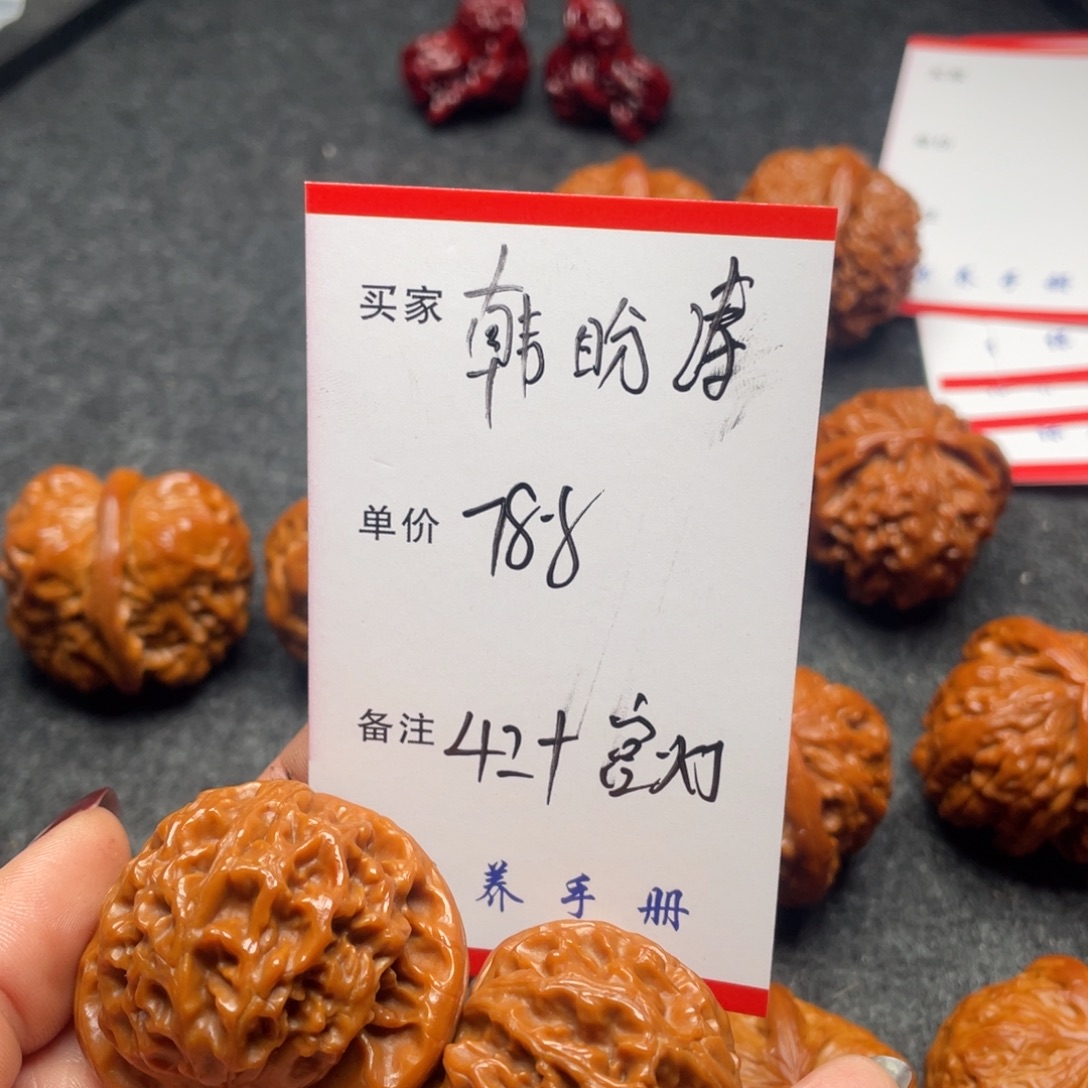 买家 韩盼涛
单价 78.8
备注 42十 宫灯
养手册